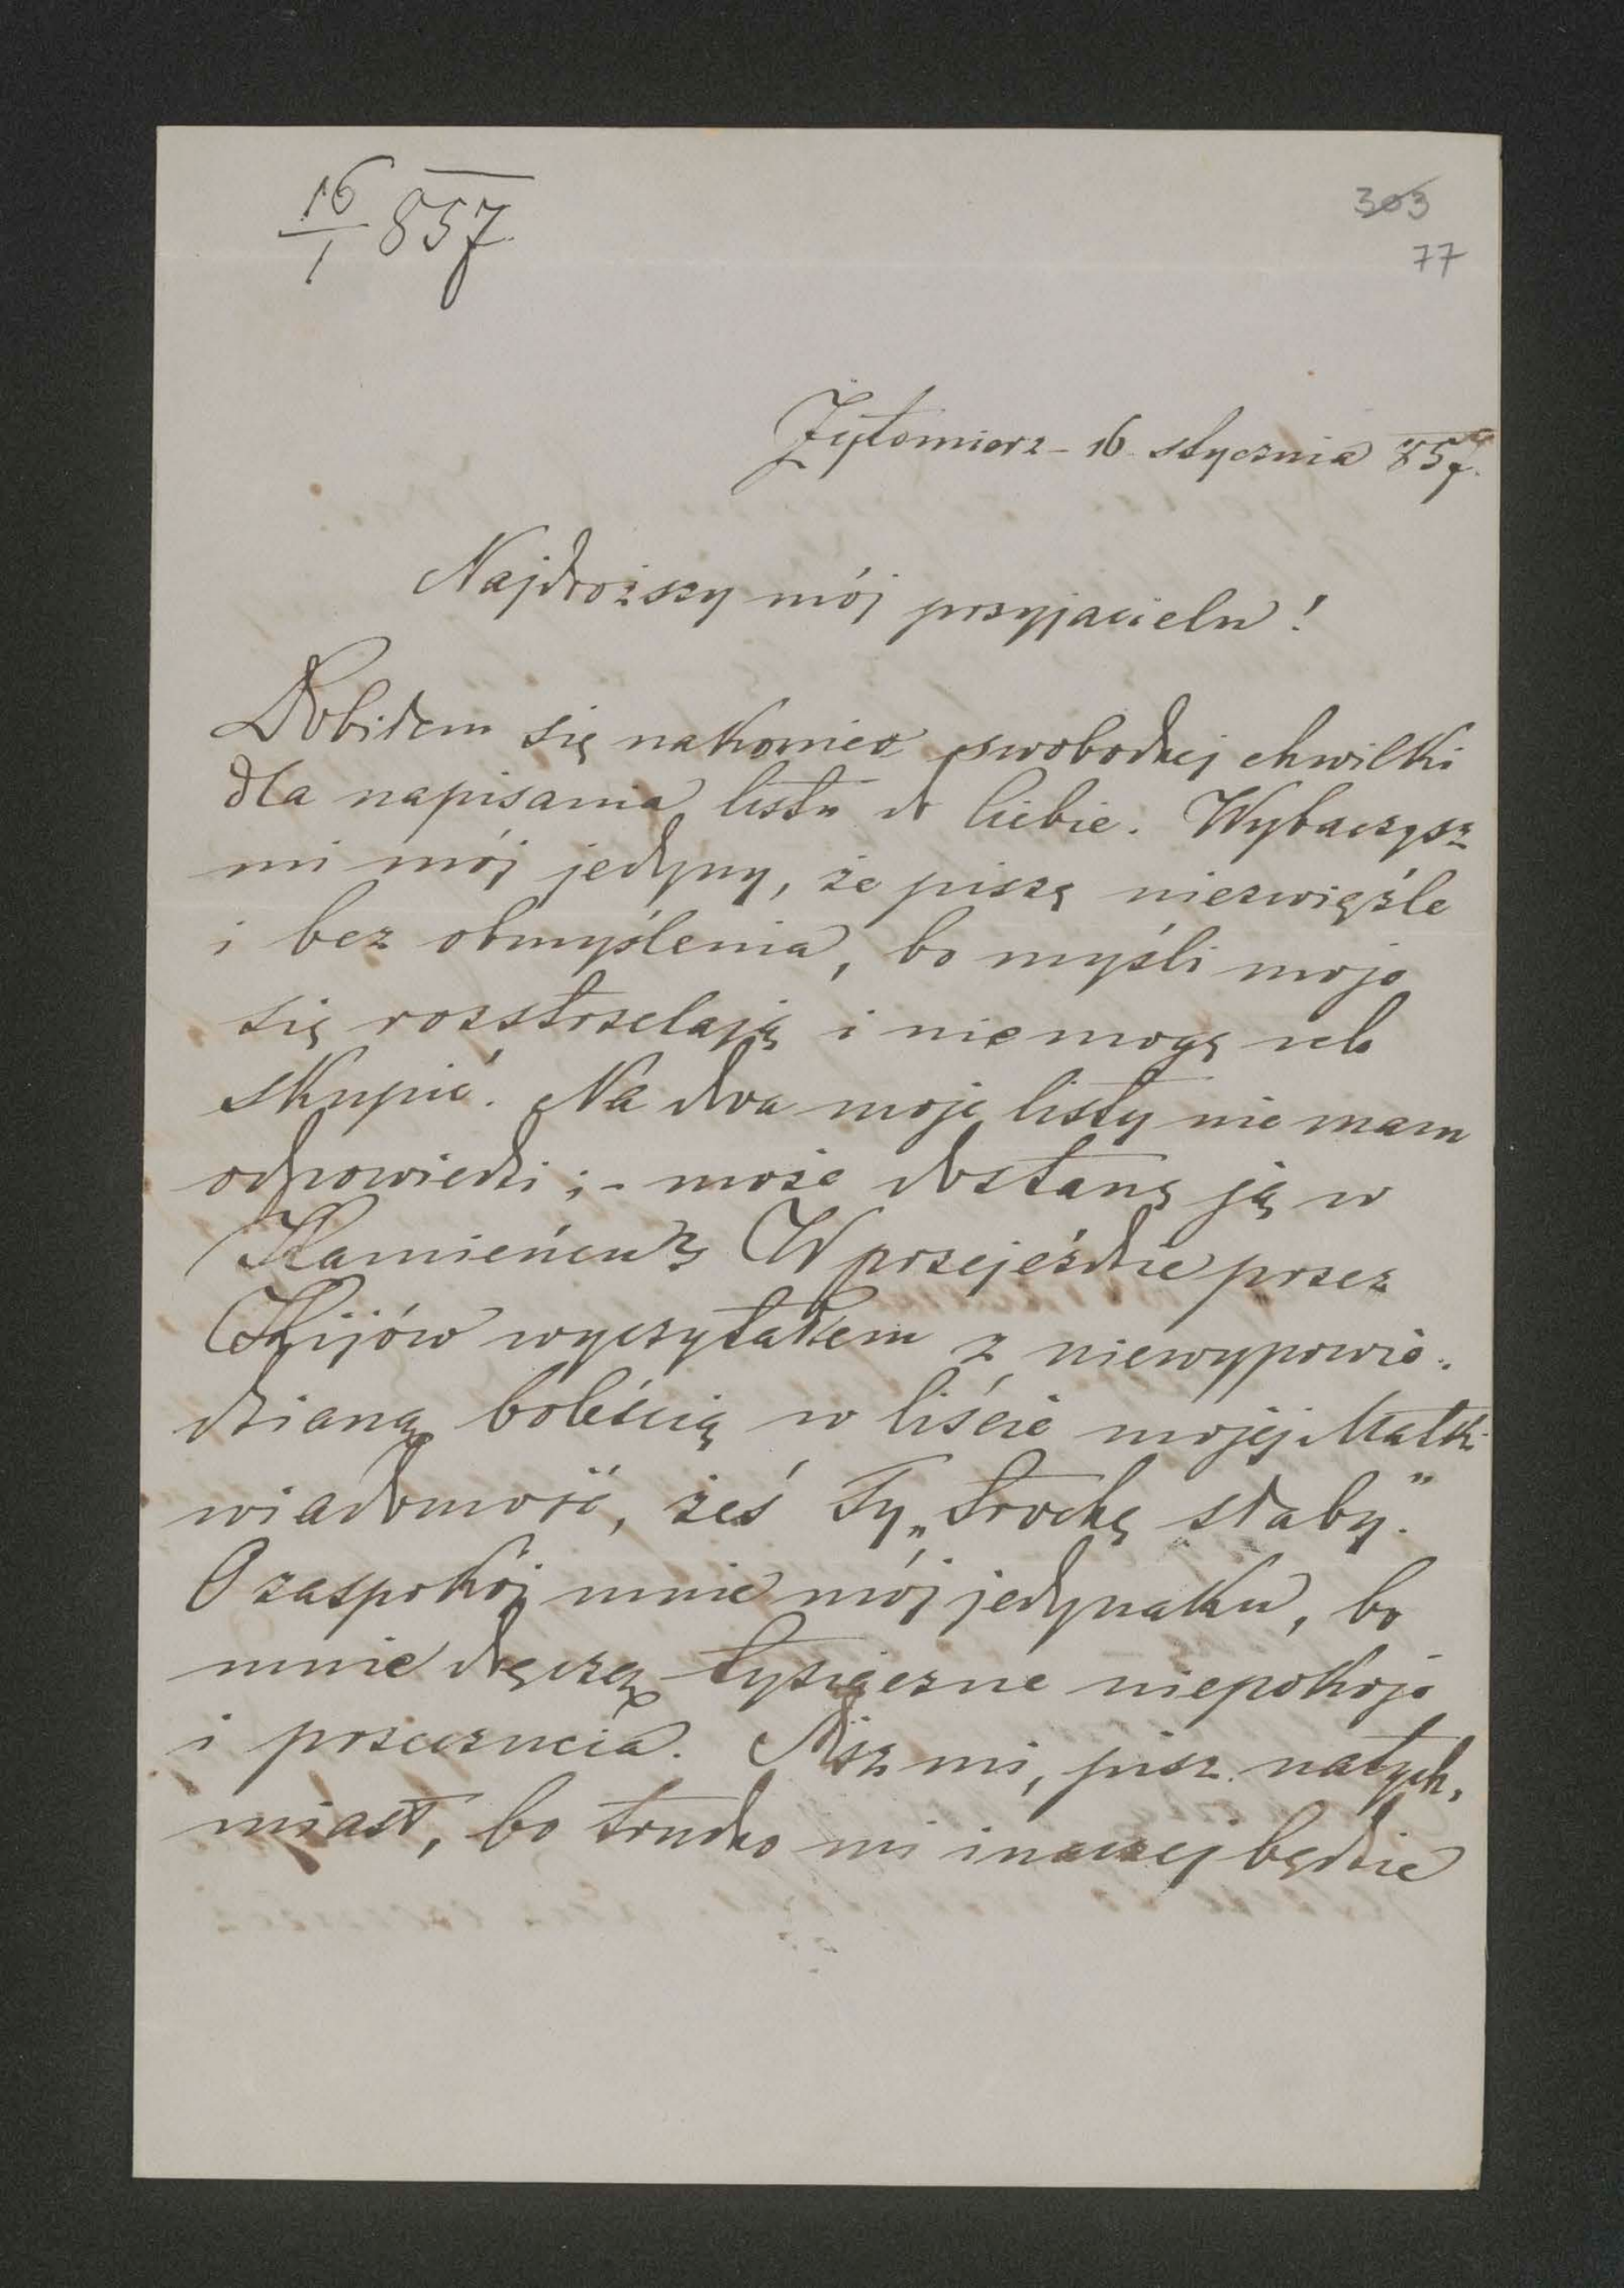 16/1 857
303
77
Żytomierz - 16 stycznia 857.
Najdroższy mój przyjacielu!
Dobiłem się nakoniec swobodnej chwilki
dla napisania listu do Ciebie. Wybaczysz
mi mój jedyny, że piszę niezwięźle
i bez obmyślenia, bo myśli moje
się rozstrzelają i nie mogę ich
skupić. Na dwa moje listy nie mam
odpowiedzi; - może dostanę ją w
Kamieńcu? W przejeździe przez
Kijów wyczytałem z niewypowie-
dzianą boleścią w liście mojej Matki
wiadomość, żeś Ty „trochę słaby."
O zaspokój mnie mój jedynaku, bo
mnie dręczą tysiączne niepokoje
i przeczucia. Pisz mi, pisz natych-
miast, bo trudno mi inaczej będzie